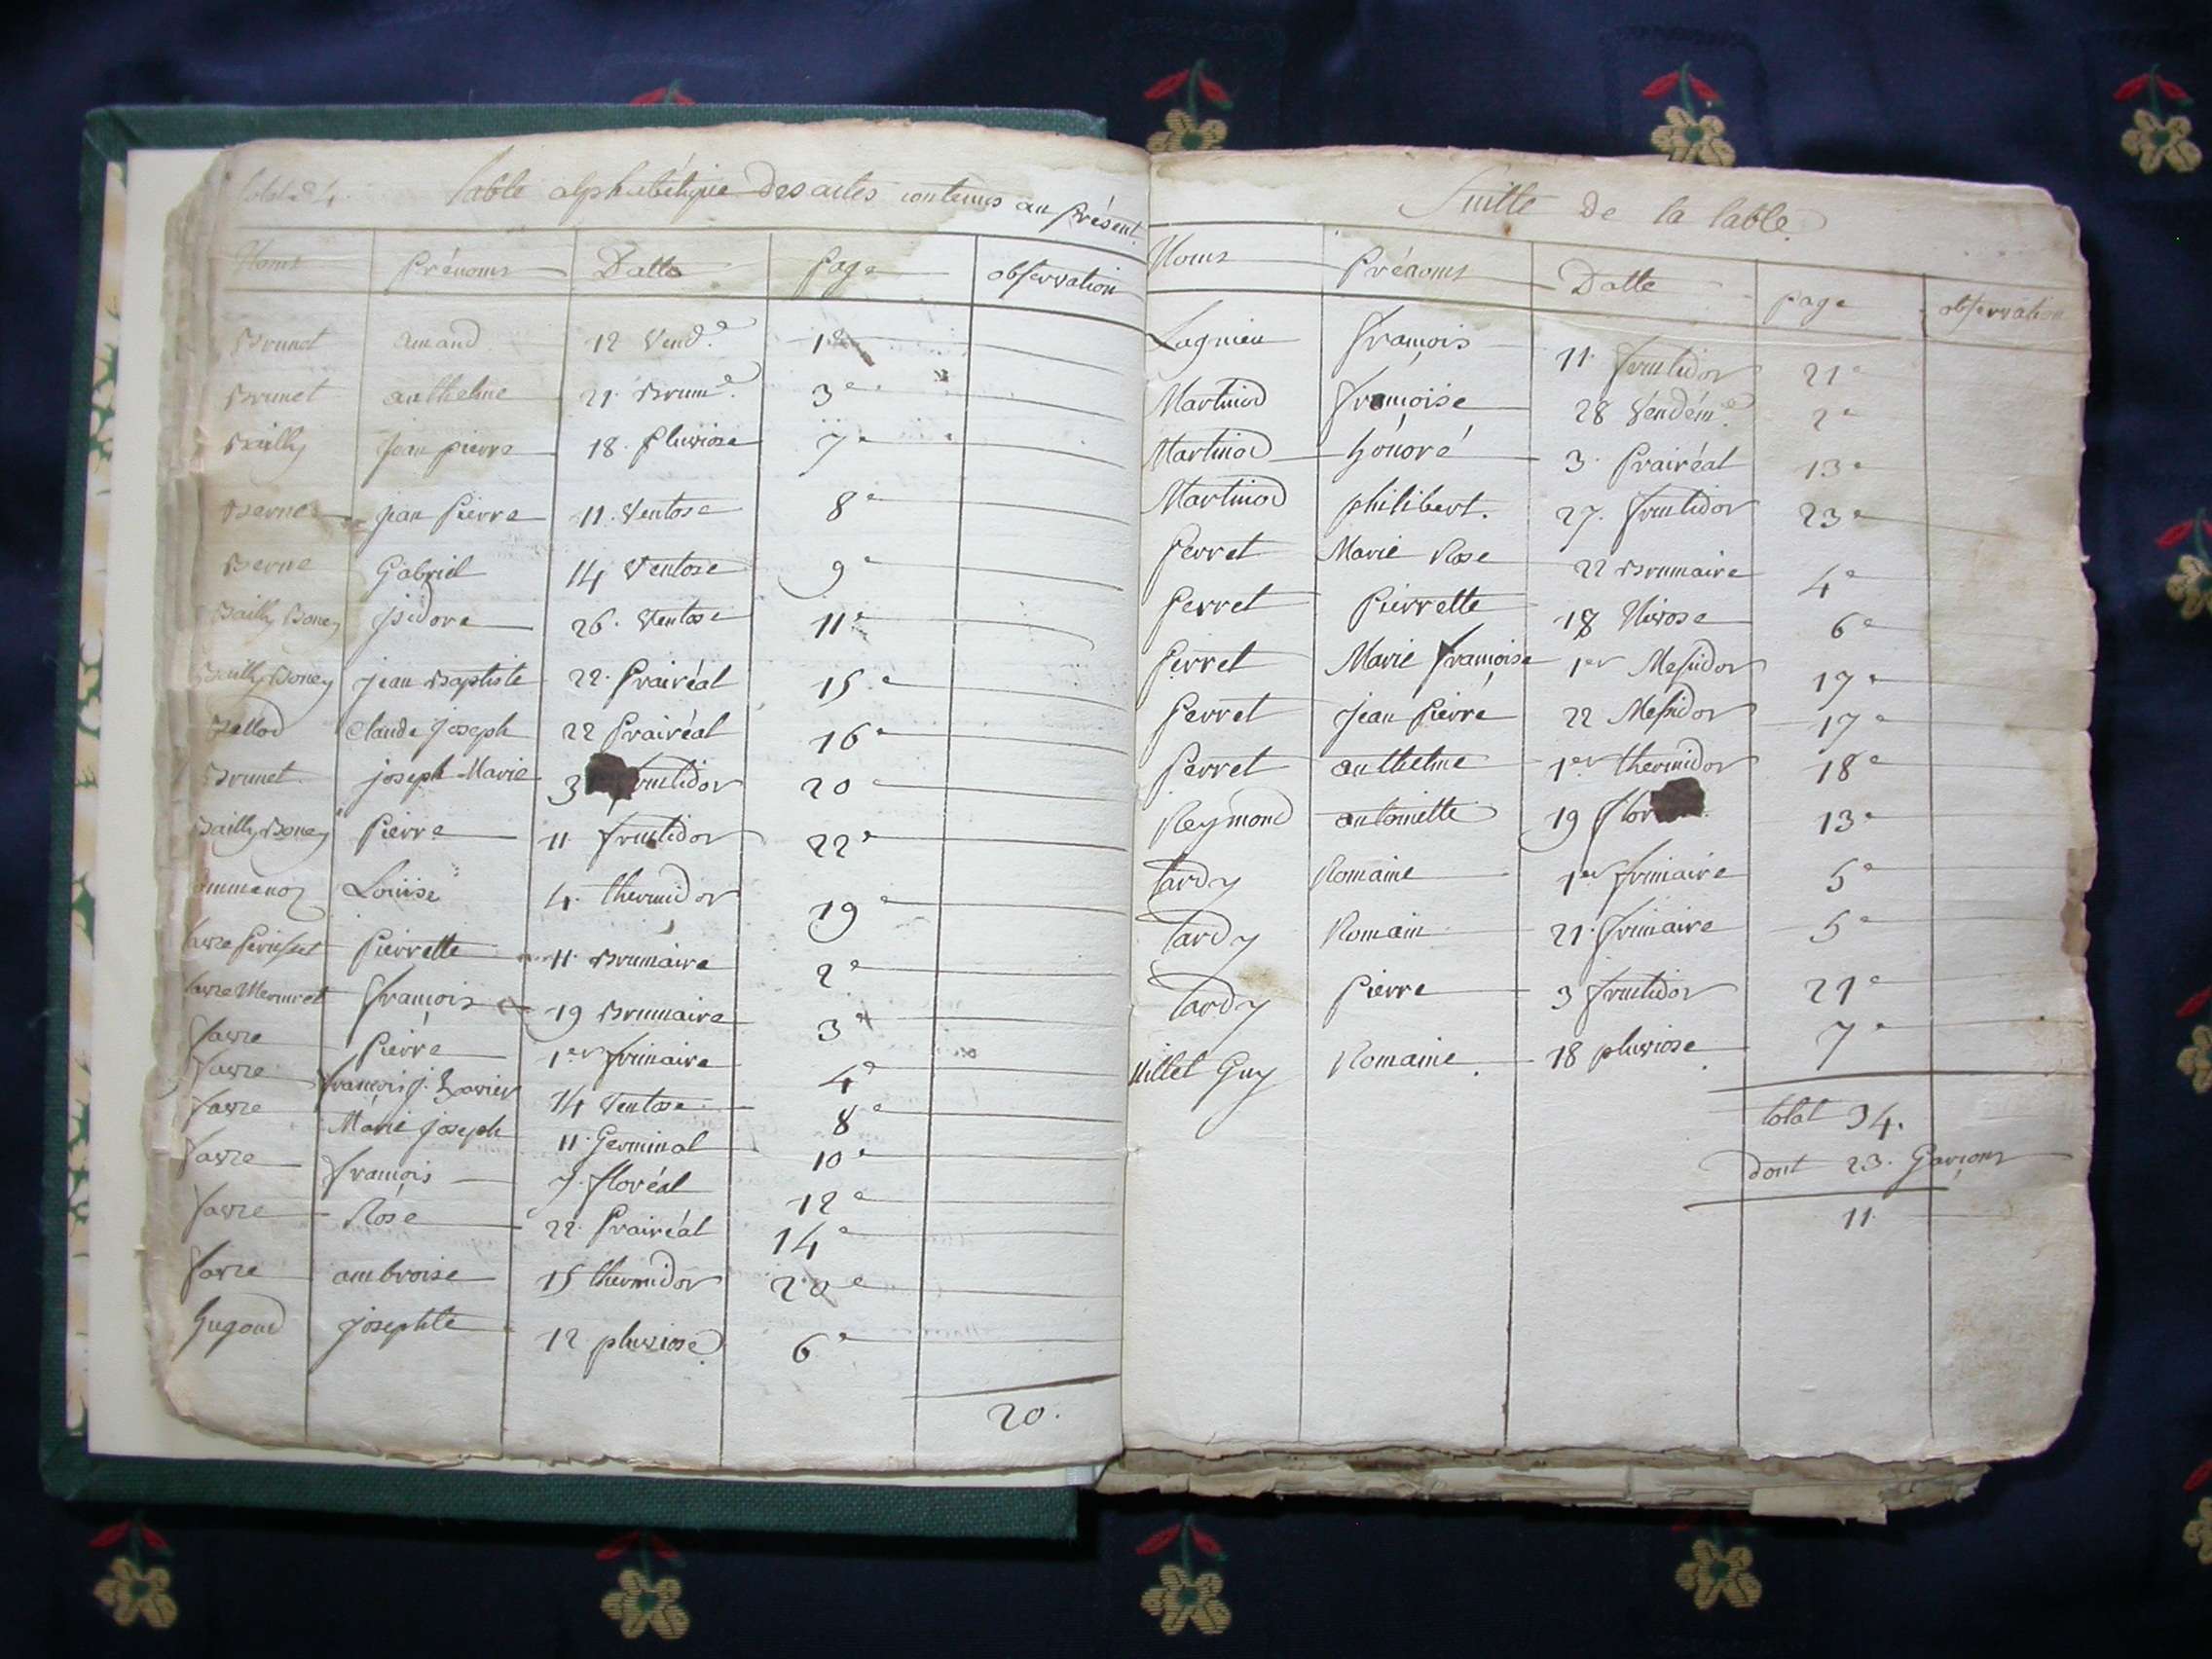 total 34. Table alphabétique des actes contenus au présent.
Noms Prénoms Datte Page observation
Brunet amand 12 Vend.e 1e
Brunet anthelme 21. Brum.e 3e
Bailly jean pierre 18. pluviose 7e
Berne jean Pierre 11. Ventose 8e
Berne Gabriel 14 Ventose 9e
Bailly Boney isidore 26. Ventose 11e
Bailly Boney jean Baptiste 22. Prairéal 15e
Ballod Claude joseph 22 Prairéal 16e
Brunet joseph Marie 3 fructidor 20
Bailly Boney Pierre 11 fructidor 22e
Louise 4. thermidor 19e
Pierrette 11. Brumaire 2e
favre Mermet françois 19 Brumaire 3e
favre Pierre 1er frimaire 4e
favre françois j. Xavier 14 Ventose 8e
favre Marie joseph 11. Germinal 10e
favre françois 7. floréal 12e
favre Rose 22. Prairéal 14e
favre ambroise 15 thermidor 20e
Gugond josephte 12 pluviose. 6e
20.
Suitte de la table.
Noms Prénoms Datte page observation
Lagnieu françois 11. fructidor 21e
Martinod françoise 28 Vendém.e 2e
Martinod honoré 3. Prairéal 13e
Martinod philibert. 27. fructidor 23e
Perret Marie Rose 22 Brumaire 4e
Perret Pierrette 18 Nivose 6e
Perret Marie françoise 1er Messidor 17e
Perret jean Pierre 22 Messidor 17e
Perret anthelme 1er thermidor 18e
Reymond antoinette 19 flor 13e
tardy Romaine 1er frimaire 5e
tardy Romain 21. frimaire 5e
tardy Pierre 3 fructidor 21e
Millet Guy Romaine. 18 pluviose. 7e
total 34.
dont 23. Garçons
11.